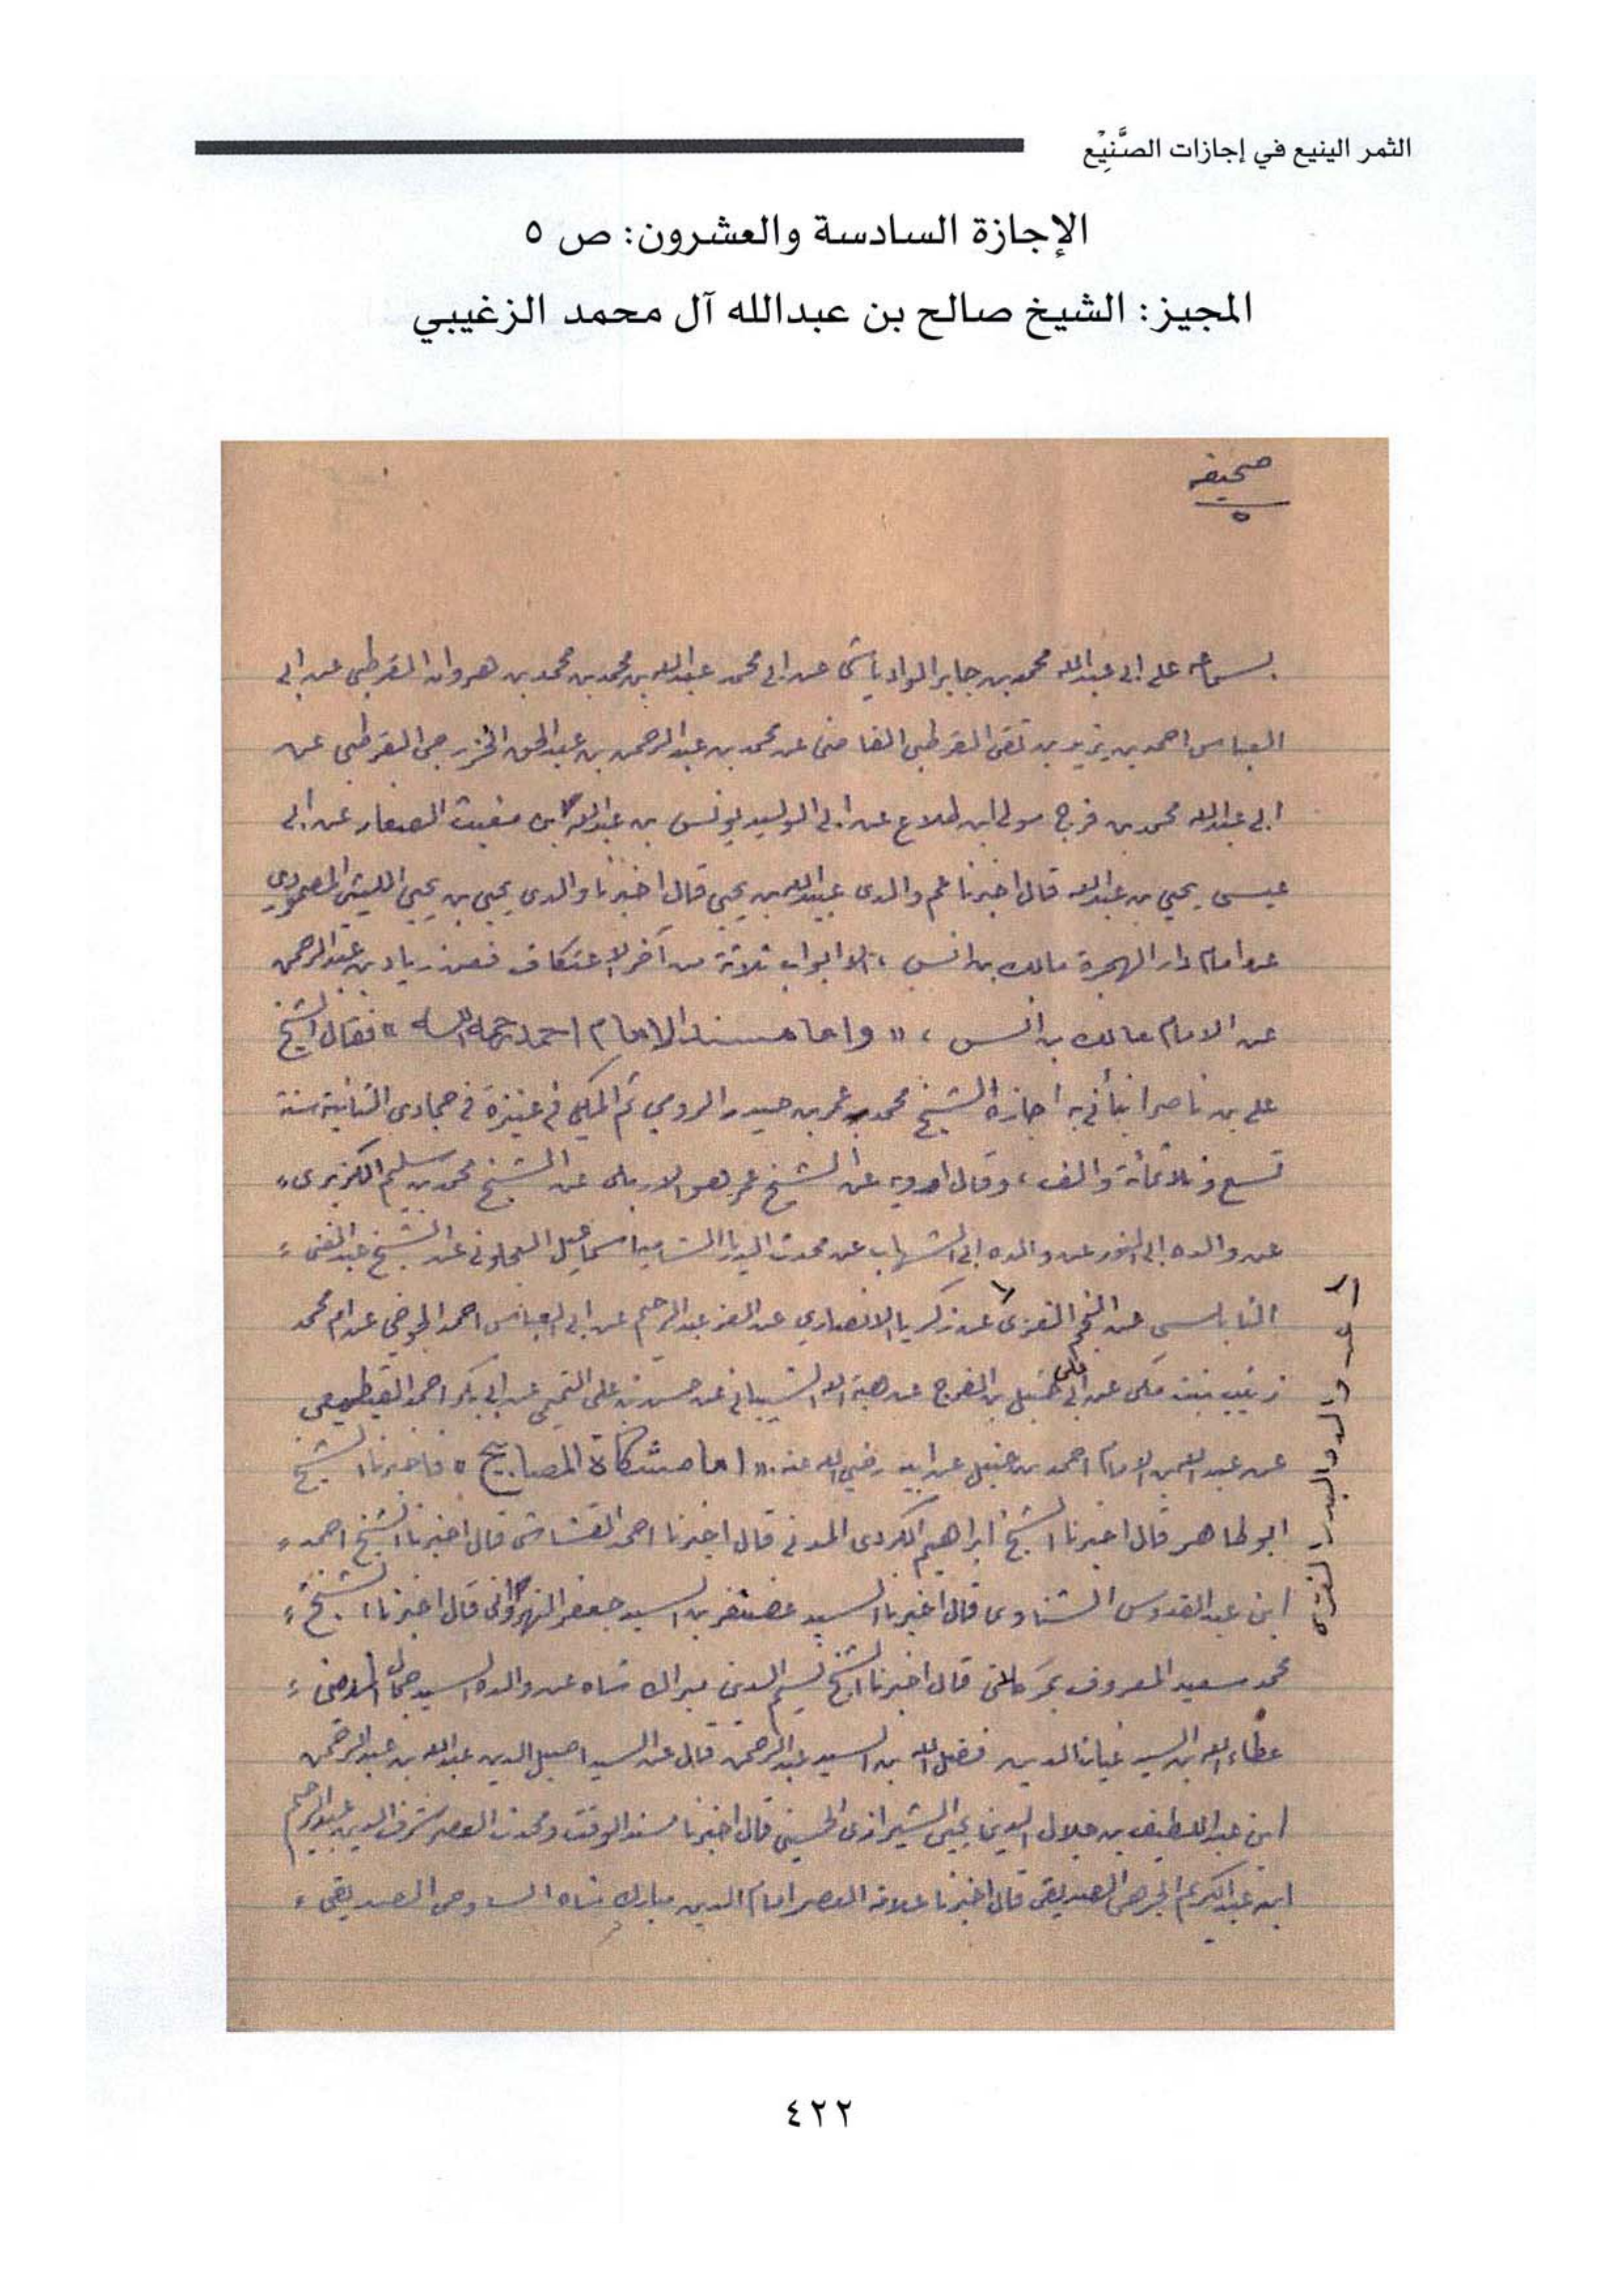 الثمر الينيع في إجازات الصَّنِيْع
الإجازة السادسة والعشرون: ص ٥
المجيز: الشيخ صالح بن عبدالله آل محمد الزغيبي
صحيفه
٥
بسماعه على ابى عبدالله محمد بن جابر الوادياشى عن ابى محمد عبدالله بن محمد بن محمد بن هروان القرطبى عن ابى
العباس احمد بن يزيد بن تقى القرطبى القاضى عن محمد بن عبدالرحمن بن عبدالحق الخزرجى القرطبى عن
ابى عبدالله محمد بن فرج مولى ابن طلاع عن ابى الوليد يونس بن عبدالله ابن مغيث الصفار عن ابى
عيسى يحيى بن عبدالله قال اخبرنا عم والدى عبيدالله بن يحيى قال اخبرنا والدي يحيى بن يحيى الليثى المصمودي
عن امام دار الهجرة مالك بن انس ، الا ابواب ثلاثة من آخر الاعتكاف فعن زياد بن عبدالرحمن
عن الامام مالك بن انس ، « واما مسند الامام احمد رحمه الله » فقال الشيخ
على بن ناصر انبأنى به اجازة الشيخ محمد بن عمر بن حيدر الرومي ثم المكي في عنيزة في جمادى الثانية سنة
تسع وثلاثمائة والف ، وقال ارويه عن الشيخ عمر هو الاربلى عن الشيخ محمد بن سليم الكزبرى ،
عن والده ابى النور عن والده ابى الشهاب عن محدث الديار الشامية اسماعيل العجلونى عن الشيخ عبدالغنى ،
النابلسى عن النجم الغزى عن زكريا الانصاري عن العز عبدالرحيم عن ابى العباس احمد الجوخي عن ام محمد
عن والده البدر الغزى
زينب بنت مكى عن ابى على حنبل بن الفرج عن هبة الله الشيبانى عن حسن بن على التميمى عن ابى بكر احمد القطيعى
عن عبدالله بن الامام احمد بن حنبل عن ابيه رضي الله عنه . « اما مشكاة المصابيح » فاخبرنا الشيخ
ابو طاهر قال اخبرنا الشيخ ابراهيم الكردى المدنى قال اخبرنا احمد القشاشى قال اخبرنا الشيخ احمد ،
ابن عبدالقدوس الشناوى قال اخبرنا السيد غضنفر بن السيد جعفر النهروانى قال اخبرنا الشيخ ،
محمد سعيد المعروف بمير كلان قال اخبرنا الشيخ نسيم الدين ميرك شاه عن والده السيد جمال الدين ،
عطاءالله بن السيد غياث الدين فضل الله بن السيد عبدالرحمن قال عن السيد اصيل الدين عبدالله بن عبدالرحمن
ابن عبداللطيف بن جلال الدين يحيى الشيرازى الحسينى قال اخبرنا مسند الوقت ومحدث العصر شرف الدين عبدالرحيم
ابن عبدالكريم الجرهى الصديقى قال اخبرنا علامة العصر امام الدين مبارك شاه الساوجى الصديقى ،
٤٢٢